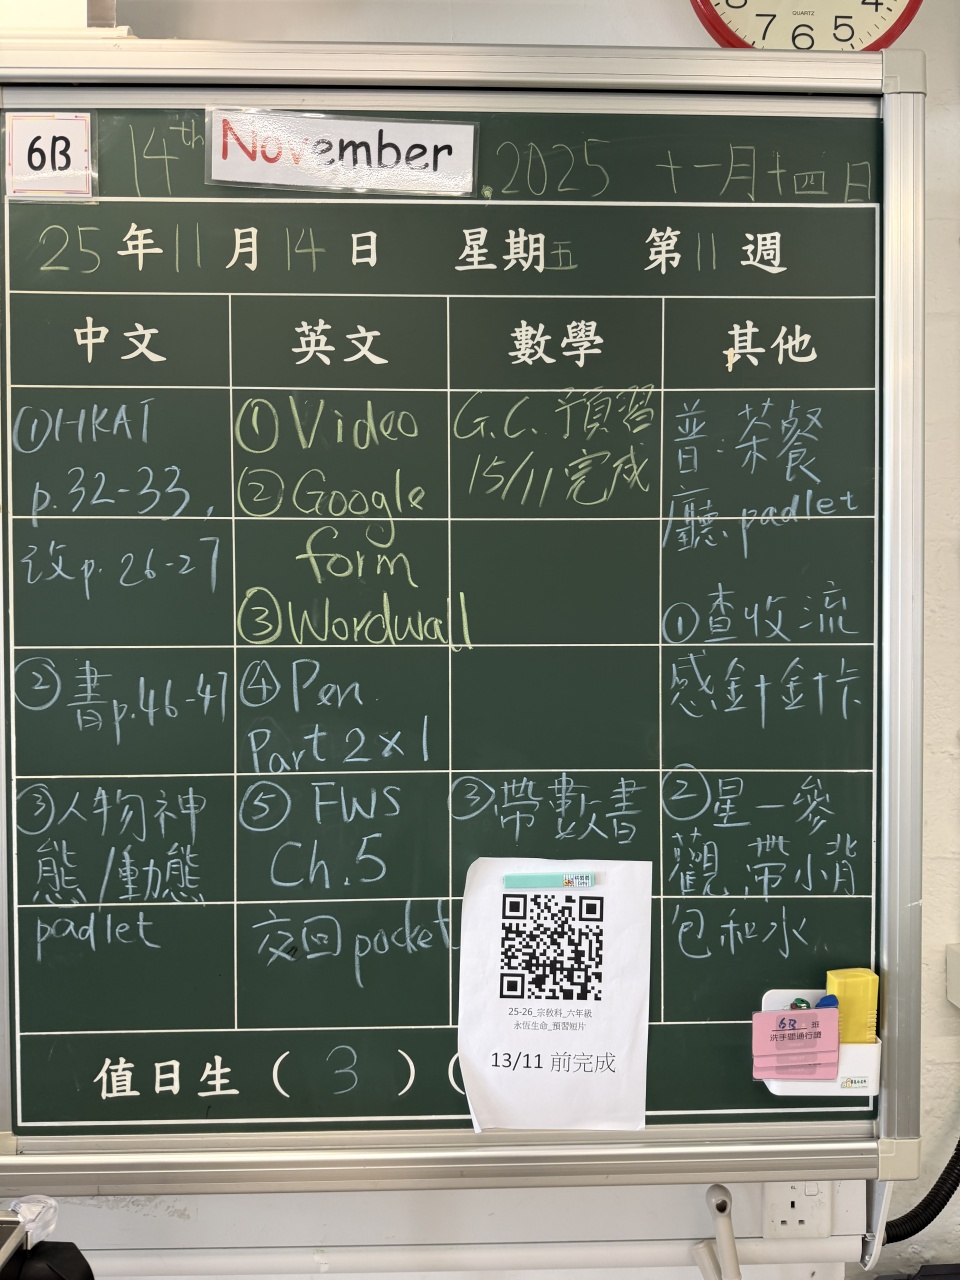 7 6 5 4
QUARTZ
6B
14th November, 2025 十一月十四日
25年11月14日 星期五 第11週
中文
英文
數學
其他
①HKAT
p.32-33,
改p.26-27
②書p.46-47
③人物神
態/動態
padlet
①Video
②Google
form
③Wordwall
④Pen
Part 2x1
⑤FWS
Ch.5
交回pocket
G.C.預習
15/11完成
③帶數書
普:茶餐
廳padlet
①查收流
感針針卡
②星一參
觀帶小背
包和水
25-26_宗教科_六年級
永恆生命_預習短片
13/11 前完成
6B 班
洗手間通行證
值日生( 3 )(